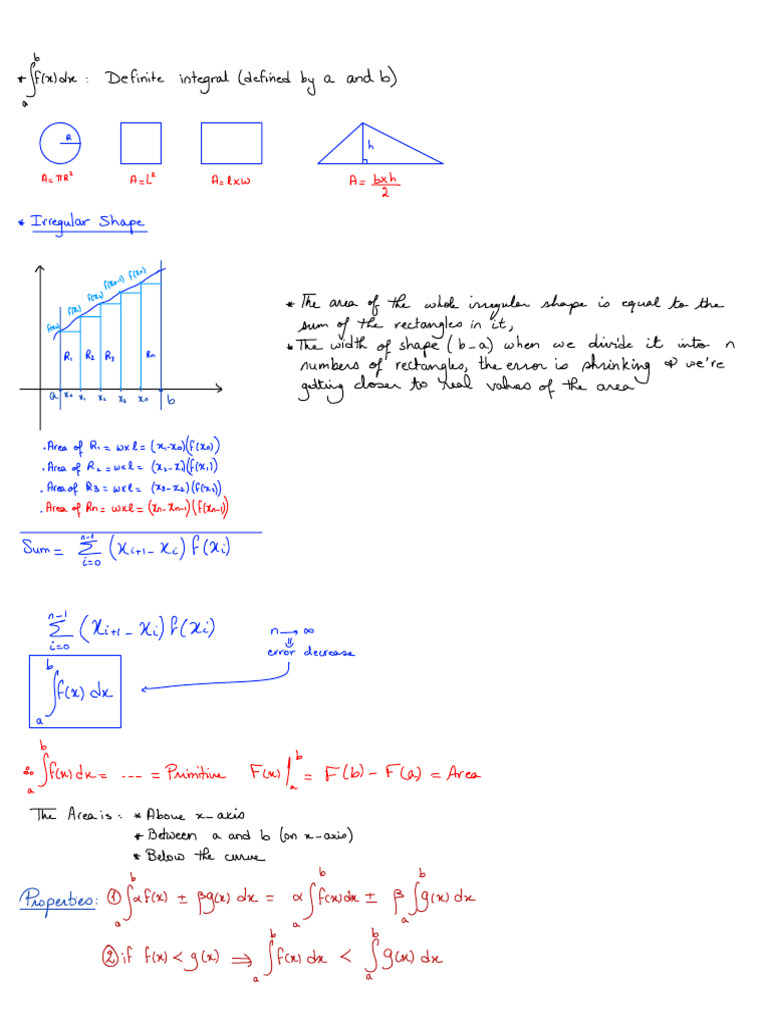 * ∫_a^b f(x)dx : Definite integral (defined by a and b)
R
h
A=πR²
A=L²
A=l×w
A= b×h/2
* Irregular Shape
f(x₀) f(x₁) f(x₂) f(xₙ₋₁) f(xₙ)
R₁ R₂ R₃ Rn
a x₀ x₁ x₂ x₃ xₙ b
* The area of the whole irregular shape is equal to the
sum of the rectangles in it,
* The width of shape (b-a) when we divide it into n
numbers of rectangles, the error is shrinking & we're
getting closer to real values of the area
. Area of R₁ = w×l = (x₁-x₀)(f(x₀))
. Area of R₂ = w×l = (x₂-x₁)(f(x₁)
. Area of R₃ = w×l = (x₃-x₂)(f(x₂)
. Area of Rn = w×l = (xn-xn-1)(f(xn-1))
Sum = Σ_{i=0}^{n-1} (x_{i+1} - x_i) f(x_i)
Σ_{i=0}^{n-1} (x_{i+1} - x_i) f(x_i)
n → ∞
⇓
error decrease
∫_a^b f(x) dx
∴ ∫_a^b f(x) dx = --- = Primitive F(x)|_a^b = F(b) - F(a) = Area
The Area is : * Above x-axis
* Between a and b (on x-axis)
* Below the curve
Properties: ① ∫_a^b αf(x) ± βg(x) dx = α ∫_a^b f(x)dx ± β ∫_a^b g(x) dx
② if f(x) < g(x) ⇒ ∫_a^b f(x) dx < ∫_a^b g(x) dx